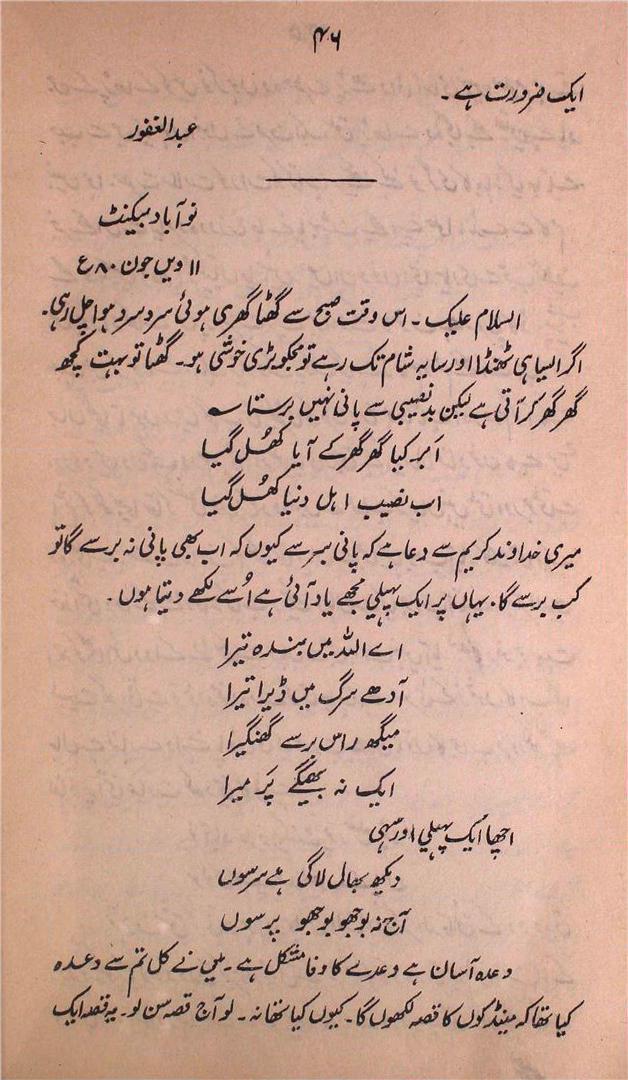 ۴۶
ایک ضرورت ہے۔
عبدالغفور
نو آباد سیکنٹ
۱۱ ویں جون ۸۰ ع
السلام علیک۔ اس وقت صبح سے گھٹا گھری ہوئی سرد سرد ہوا چل رہی۔
اگر ایسا ہی ٹھنڈا اور سایہ شام تک رہے تو مجکو بڑی خوشی ہو۔ گھٹا تو بہت کچھ
گھر گھر کر آتی ہے لیکن بدنصیبی سے پانی نہیں برستا ؎
ابر کیا گھر گھر کے آیا کھُل گیا
اب نصیب اہل دنیا کھُل گیا
میری خداوند کریم سے دعا ہے کہ پانی برسے کیوں کہ اب بھی پانی نہ برسے گا تو
کب برسے گا۔ یہاں پر ایک پہیلی مجھے یاد آئی ہے اُسے لکھے دیتا ہوں۔
اے اللہ میں بندہ تیرا
آدھے سرگ میں ڈیرا تیرا
میگھ راس برسے گھنگیرا
ایک نہ بھیگے پَر میرا
اچھا ایک پہیلی اور سہی
دیکھ بھال لاگی ہے سرسوں
آج نہ بوجھو بوجھو پرسوں
وعدہ آسان ہے وعدے کا وفا مشکل ہے۔ میں نے کل تم سے وعدہ
کیا تھا کہ مینڈکوں کا قصہ لکھوں گا۔ کیوں کیا تھا نہ۔ لو آج قصہ سن لو۔ یہ قصہ ایک